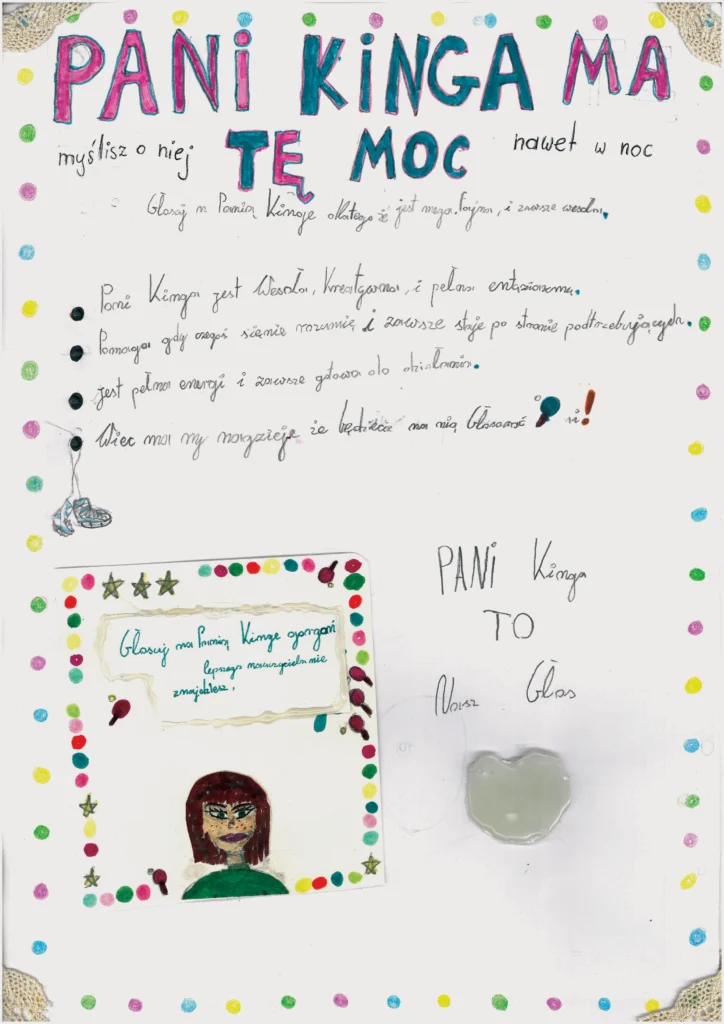 PANi KiNGA MA
myślisz o niej TĘ MOC nawet w noc
Głosuj n Panią Kinge dlatego że jest mega fajna, i zawsze wesoła.
Pani Kinga jest Wesoła, Kreatywna, i pełna entuzjazmu.
Pomaga gdy czegoś sięnie rozumię i zawsze staje po stronie podtrzebujących.
jest pełna energi i zawsze gotowa do działania.
Wiec ma my nadzieje że będziecie na nią Głosować
Głosuj na Panią Kinge
lepszego nauczyciela nie
znajdziesz.
PANi Kinga
TO
Nasz Głos